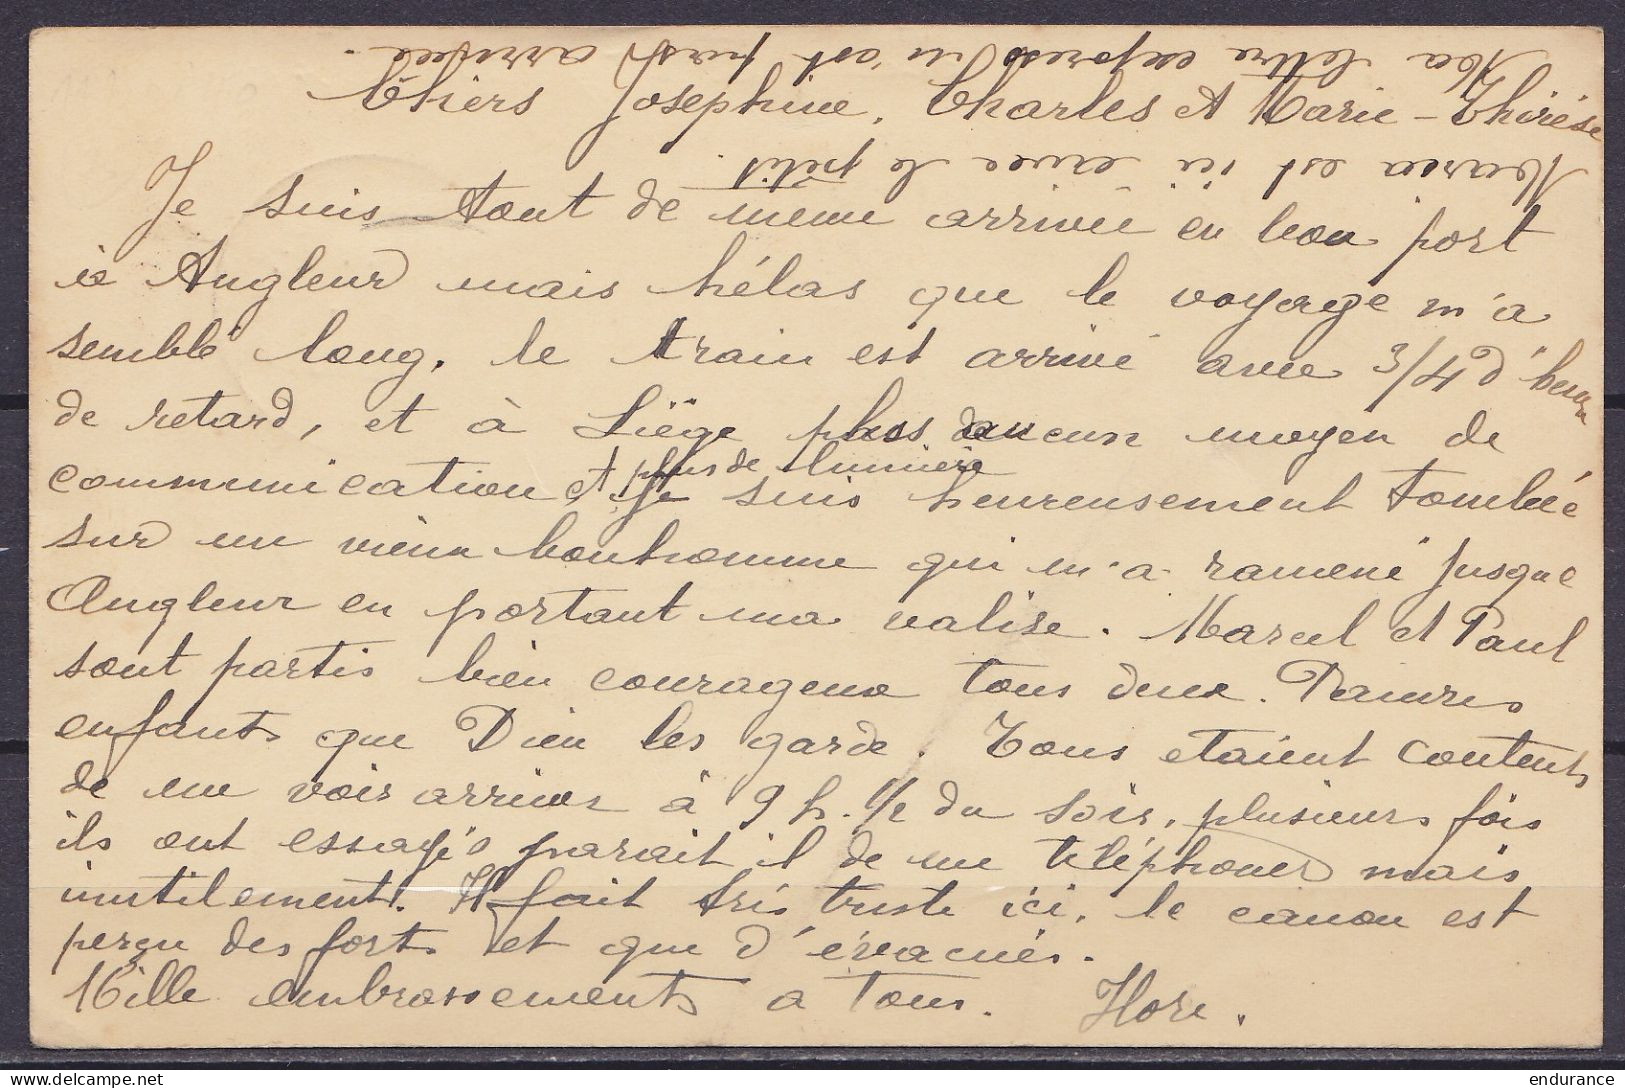 Ma lettre express n'est pas arrivée.
Chers Josephine, Charles et Marie-Thérèse
Maria est ici avec le petit.
Je suis tout de même arrivée en bon port
à Angleur mais hélas que le voyage m'a
semblé long, le train est arrivé avec 3/4 d'heure
de retard, et à Liège plus aucun moyen de
communication et plus de lumière
je suis heureusement tombée
sur un vieux bonhomme qui m'a ramené jusque
Angleur en portant ma valise. Marcel et Paul
sont partis bien courageux tous deux. Pauvres
enfants que Dieu les garde. Tous etaient contents
de me voir arriver à 9 h. 1/2 du soir, plusieurs fois
ils ont essayés parait il de me téléphoner mais
inutilement. Il fait très triste ici, le canon est
perçu des forts et que d'évacués.
Mille embrassements a tous. Flore.
endurance